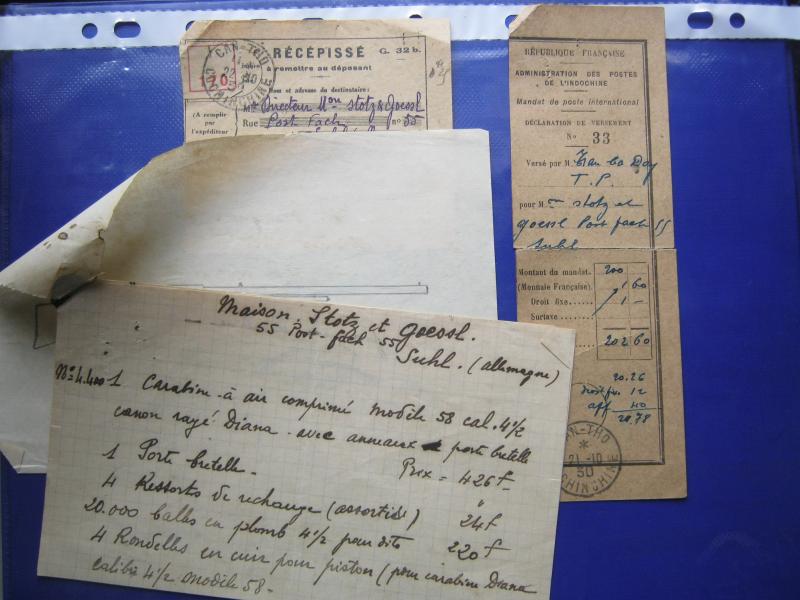 RÉCÉPISSÉ G. 32 b.
à remettre au déposant
CAN-THO
COCHINCHINE
Nom et adresse du destinataire:
Mr Directeur Mon Stotz & Goessl
Rue Post Fach no 55
(A remplir
par
l'expéditeur
RÉPUBLIQUE FRANÇAISE
ADMINISTRATION DES POSTES
DE L'INDOCHINE
Mandat de poste international
DÉCLARATION DE VERSEMENT
No 33
Versé par M. Tran ba Day
T. P.
pour M on Stotz et
Goessl Post fach 55
Suhl
Montant du mandat. 200
(Monnaie Française). 1 60
Droit fixe 1 —
Surtaxe
202 60
20.26
12
aff 40
20.78
CAN-THO
21-10
30
COCHINCHINE
Maison Stotz et Goessl.
55 Post-fach 55
Suhl. (allemagne)
No 4.400 1 Carabine à air comprimé modèle 58 cal. 4 1/2
canon rayé Diana avec anneaux porte bretelle
Prix = 426 f
1 Porte bretelle.
4 Ressorts de rechange (assortis) 24 f
20.000 balles en plomb 4 1/2 pour dito 220 f
4 Rondelles en cuir pour piston (pour carabine Diana
calibre 4 1/2 modèle 58 -